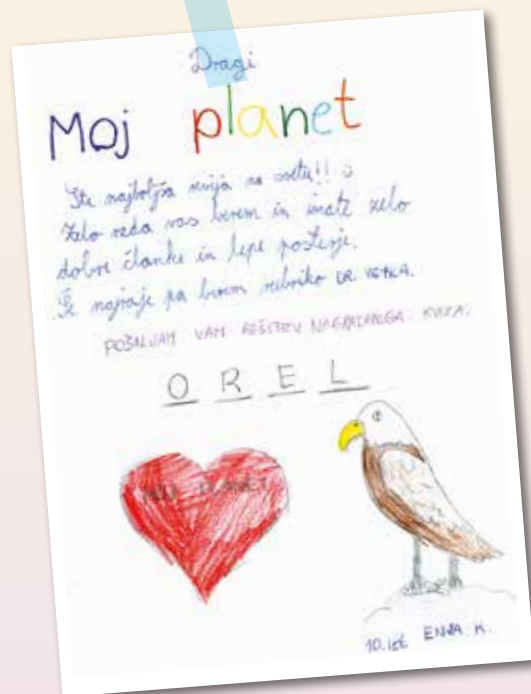 Dragi
Moj planet
Ste najboljša revija na svetu!! :)
Zelo rada vas berem in imate zelo
dobre članke in lepe posterje.
Še najraje pa berem rubriko DR. VETKA.
POŠILJAM VAM REŠITEV NAGRADNEGA KVIZA:
O R E L
MOJ PLANET
10. let ENJA K.